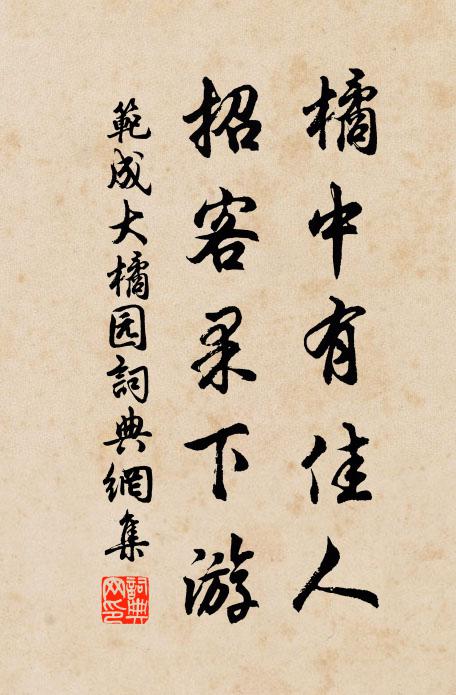 橘中有佳人
招客果下游
範成大橘园詞典網集
詞典网印